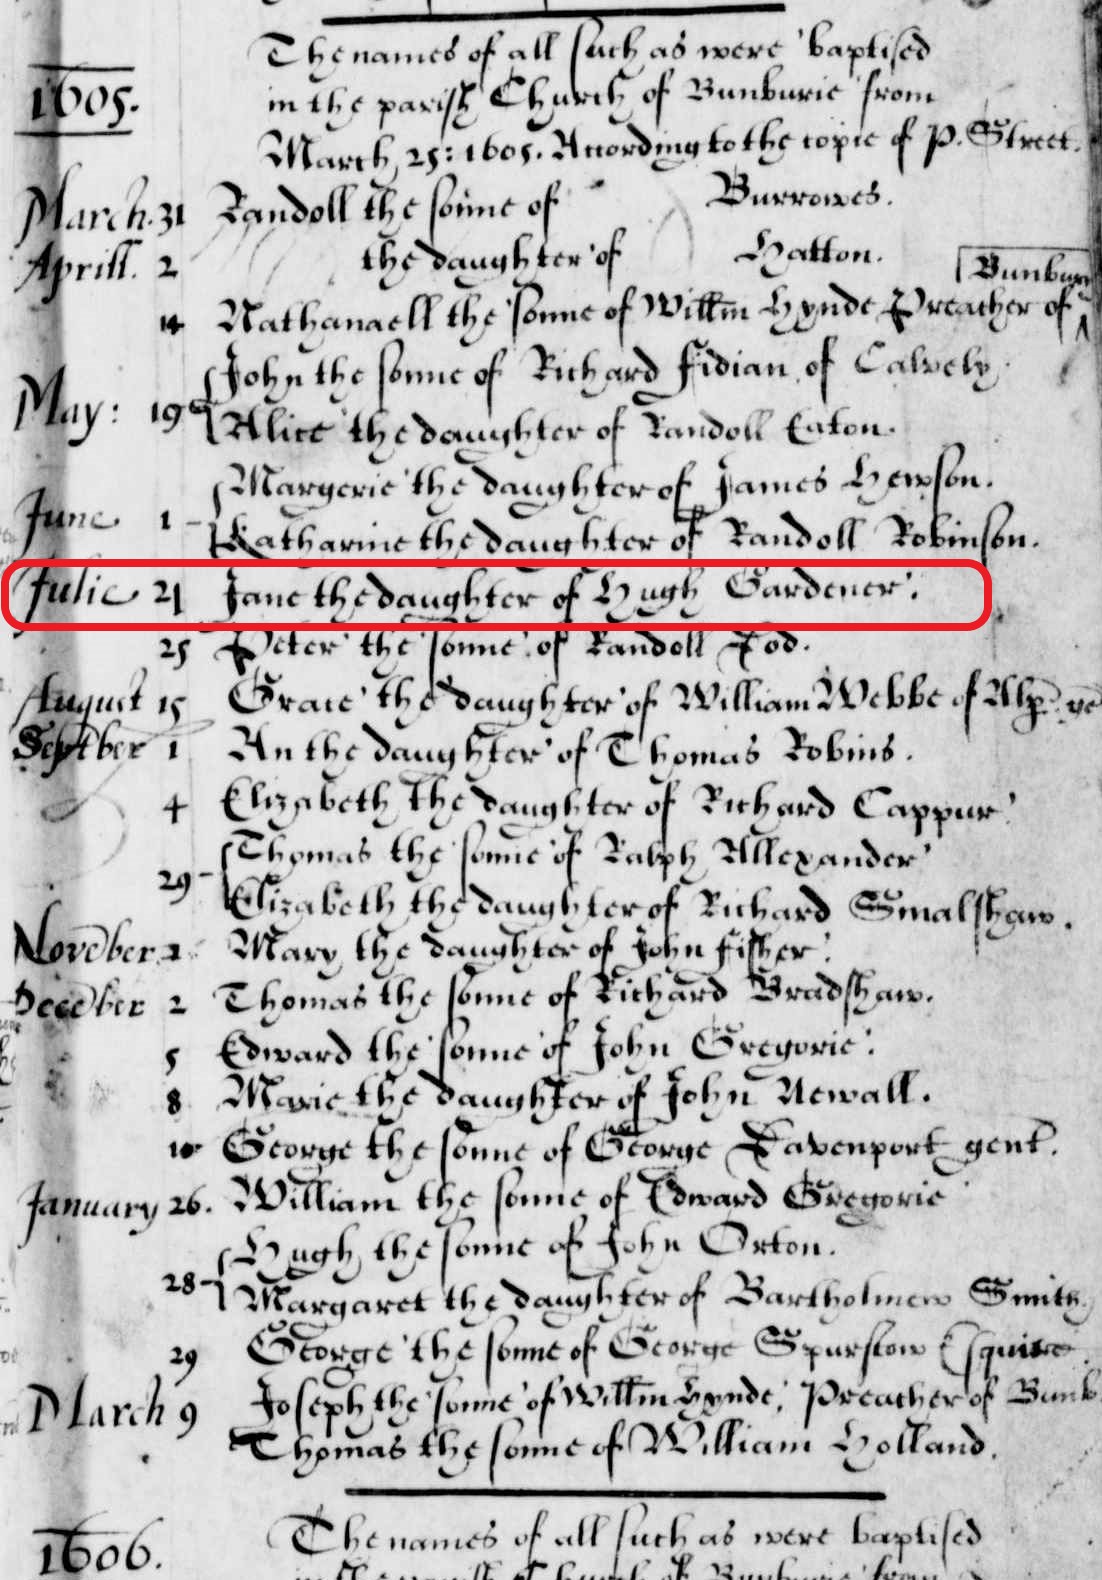 The names of all such as were baptised
1605.
in the parish Church of Bunburie from
March 25: 1605. According to the copie of P. Street.
March. 31 Randoll the sonne of Burrowes.
Aprill. 2 the daughter of Hatton.
Bunbury
14 Nathanaell the sonne of Willm Hynde Preacher of ^
John the sonne of Richard Fidian of Calvely.
May: 19
Alice the daughter of Randoll Eaton.
Margerie the daughter of James Hewson.
June 1
Katharine the daughter of Randoll Robinson.
Julie 21 Jane the daughter of Hugh Gardener.
25 Peter the sonne of Randoll Rod.
August 15 Grace the daughter of William Webbe of Alp.
Septber 1 An the daughter of Thomas Robins.
4 Elizabeth the daughter of Richard Cappur
Thomas the sonne of Ralph Allexander
29
Elizabeth the daughter of Richard Smalshaw.
Novēber 1 Mary the daughter of John Fisher.
Decēber 2 Thomas the sonne of Richard Bradshaw.
5 Edward the sonne of John Gregorie.
8 Marie the daughter of John Newall.
10 George the sonne of George Davenport gent.
January 26. William the sonne of Edward Gregorie
Hugh the sonne of John Orton.
28
Margaret the daughter of Bartholmew Smith
29 George the sonne of George Spurstow Esquire.
March 9 Joseph the sonne of Willm Hynde, Preacher of Bunb
Thomas the sonne of William Holland.
The names of all such as were baptised
1606.
in the parish Church of Bunburie from